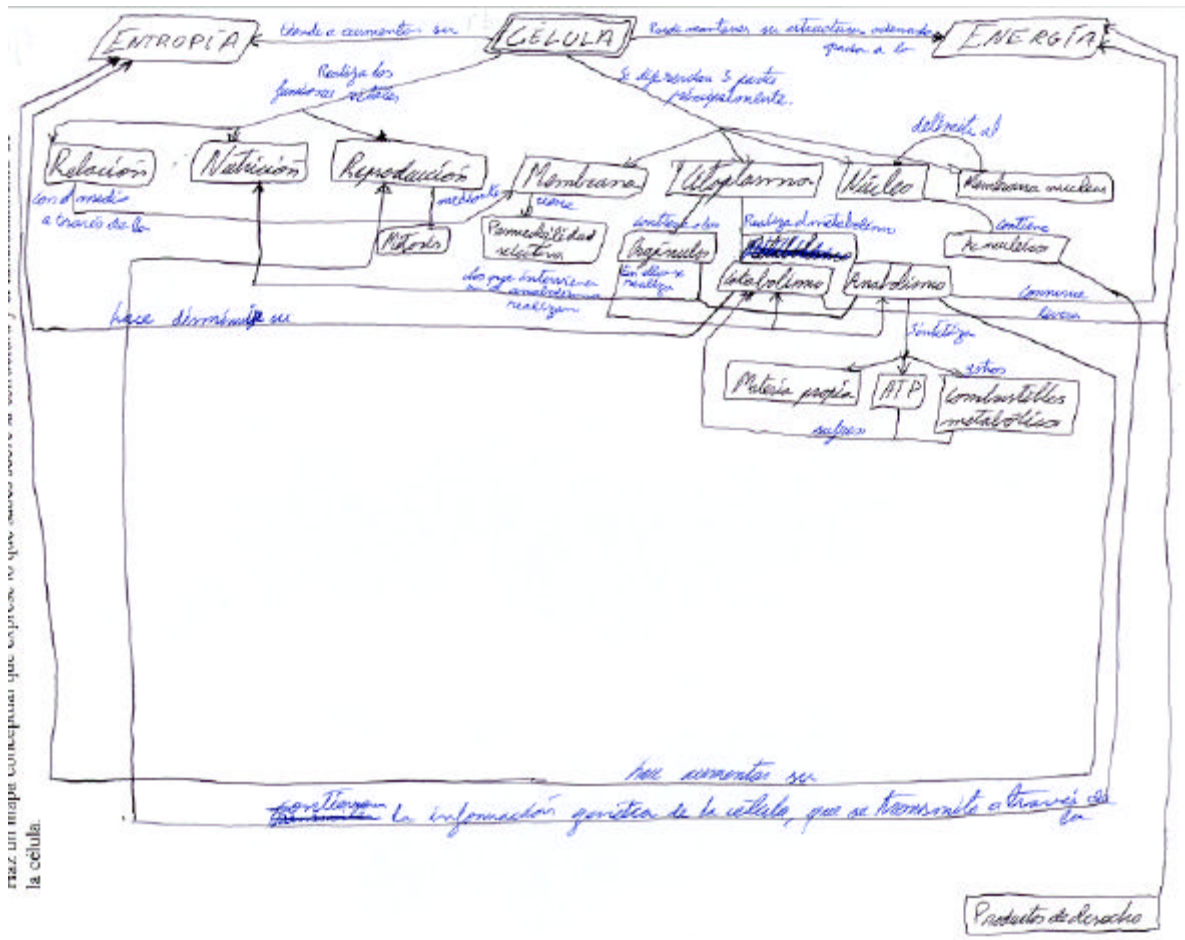 ENTROPÍA
tiende a aumentar su
CÉLULA
Puede mantener su estructura ordenada
gracias a la
ENERGÍA
Realiza las
funciones vitales
Se diferencian 3 partes
principalmente.
delimita al
Relación
Nutrición
Reproducción
Membrana
Citoplasma
Núcleo
Membrana nuclear
con el medio
a través de la
mediante
Mitosis
tiene
Permeabilidad
selectiva
contiene los
Orgánulos
Realiza el metabolismo
contiene
Ac nucleico
En ellos se
realiza
Catabolismo
Anabolismo
los que intervienen
realizan
consume
libera
hace disminuir su
Sintetiza
otros
Materia propia
ATP
combustibles
metabólicos
sufren
hace aumentar su
contiene la información genética de la célula, que se transmite a través de
la
Productos de desecho
Haz un mapa conceptual que exprese lo que sabes sobre la
la célula.